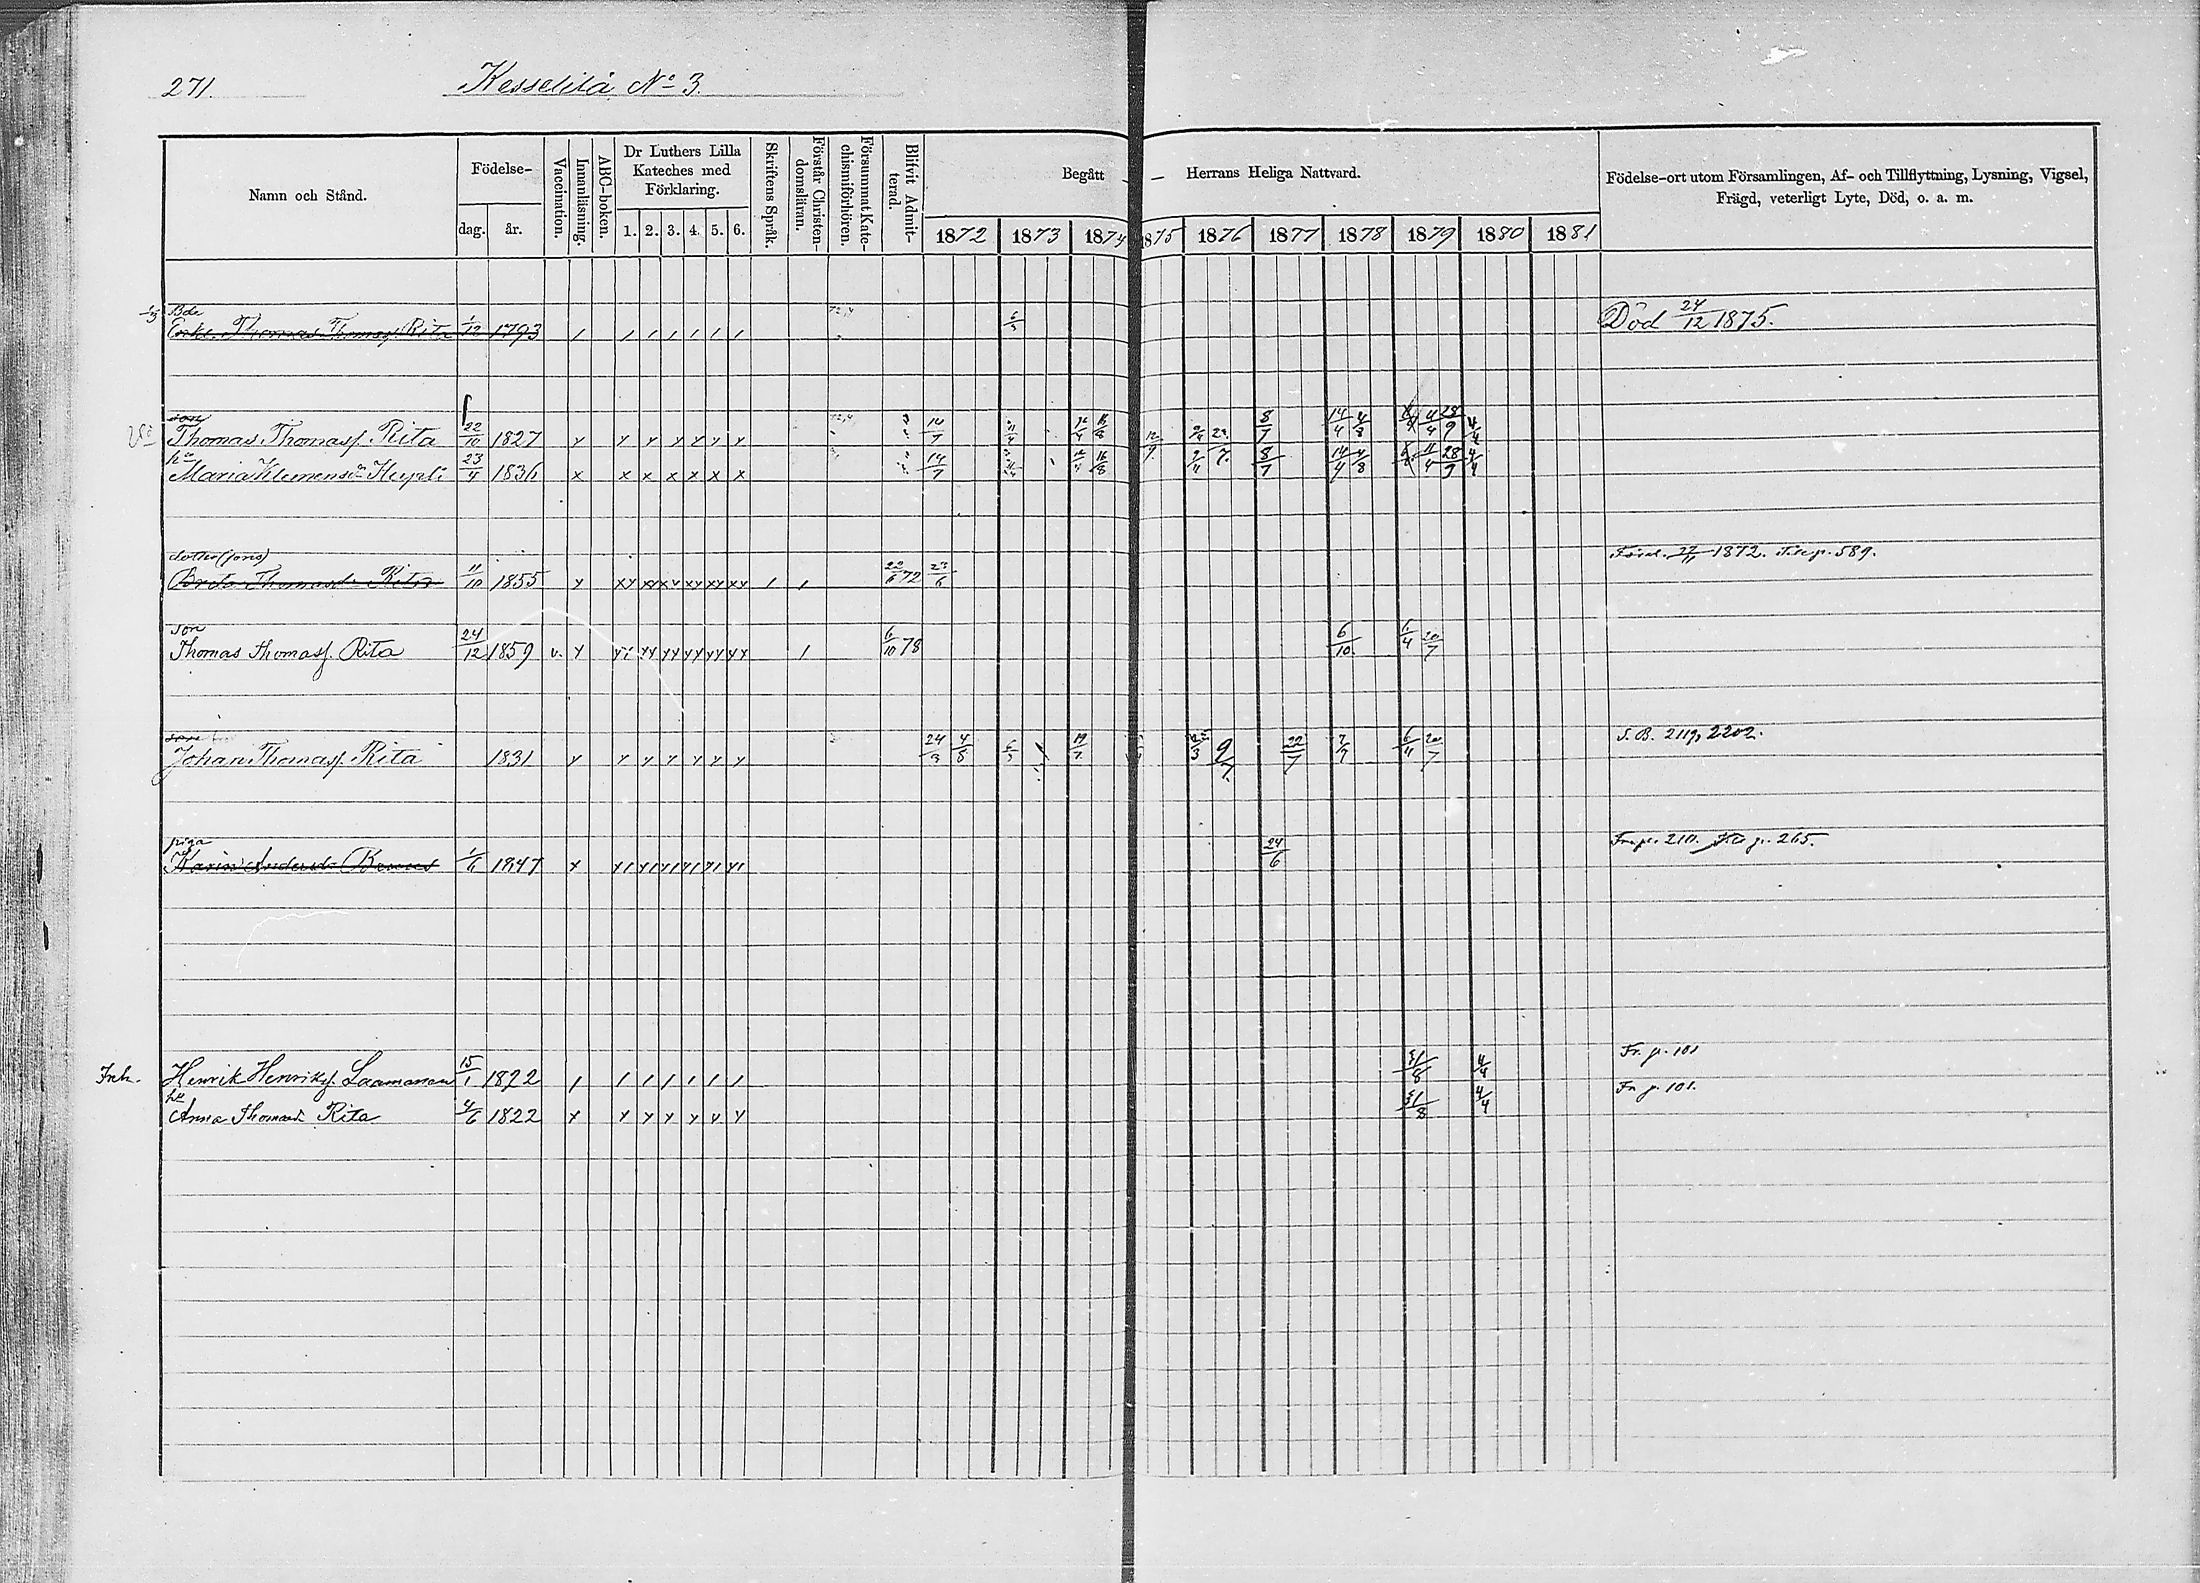 271. Kesselilä No 3.
Namn och Stånd. Födelse- dag. år. Vaccination. Innanläsning. ABC-boken. Dr Luthers Lilla Kateches med Förklaring. 1. 2. 3. 4. 5. 6. Skriftens Språk. Förstår Christendomsläran. Försummat Katechismiförhören. Blifvit Admitterad. Begått — Herrans Heliga Nattvard. 1872 1873 1874 1875 1876 1877 1878 1879 1880 1881 Födelse-ort utom Församlingen, Af- och Tillflyttning, Lysning, Vigsel, Frägd, veterligt Lyte, Död, o. a. m.
Bde
Enkl. Thomas Thomasf. Rita 1/12 1793 Död 24/12 1875.
son
Thomas Thomasf. Rita 22/10 1827 14/7 8/7 14/4 4/8 28/9 4/4
Maria Klemensdr 23/4 1836 14/7 8/7 14/4 4/8 28/9 4/4
dotter
Thomasdr Rita 11/10 1855 22/6 72 23/6 1872. p. 589.
son
Thomas Thomasf. Rita 24/12 1859 v. 6/10 78 6/10 6/4 20/7
son
Johan Thomasf. Rita 1831 24/3 4/8 19/7 9/7 22/7 20/7 S. B. 2119, 2202.
piga
Karin Andersdr 1/6 1847 24/6 p. 265.
Inh. Henrik Henriksf. Laamanen 15/1 1822 31/8 4/4 Fr. p. 101
Anna Thomasdr Rita 4/6 1822 31/8 4/4 Fr. p. 101.